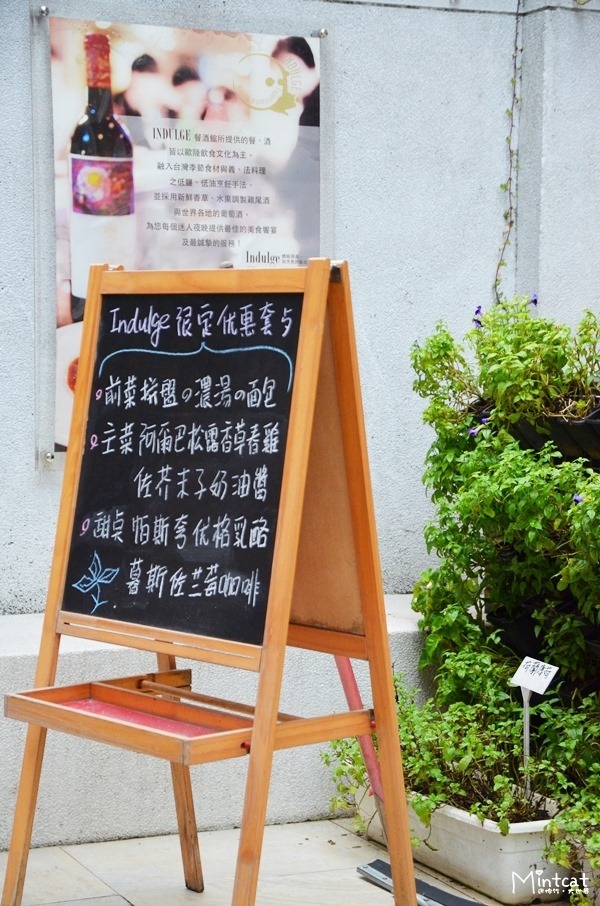 INDULGE 餐酒館所提供的餐、酒
皆以歐陸飲食文化為主，
融入台灣季節食材與義、法料理
之低鹽、低油烹飪手法，
並採用新鮮香草、水果調製雞尾酒
與世界各地的葡萄酒，
為您每個迷人夜晚提供最佳的美食饗宴
及最誠摯的服務！
Indulge
Indulge 限定优惠套与
前菜拼盤の濃湯の面包
主菜 阿爾巴松露香草春雞
佐芥末子奶油醬
甜桌 帕斯夸优格乳酪
慕斯佐兰莓
Mintcat